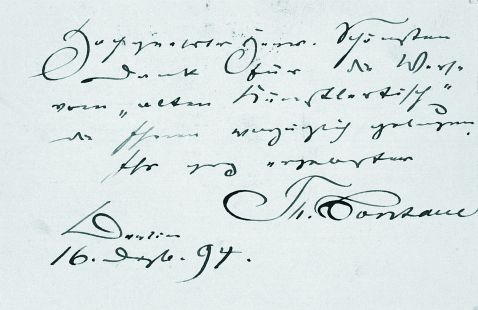 Hochgeehrter Herr. Schönsten
Dank für die Verse
vom „alten Künstlertisch"
die Ihnen vorzüglich gelungen.
Ihr ergebenster
Th. Fontane
Berlin
16. Dezb. 94.